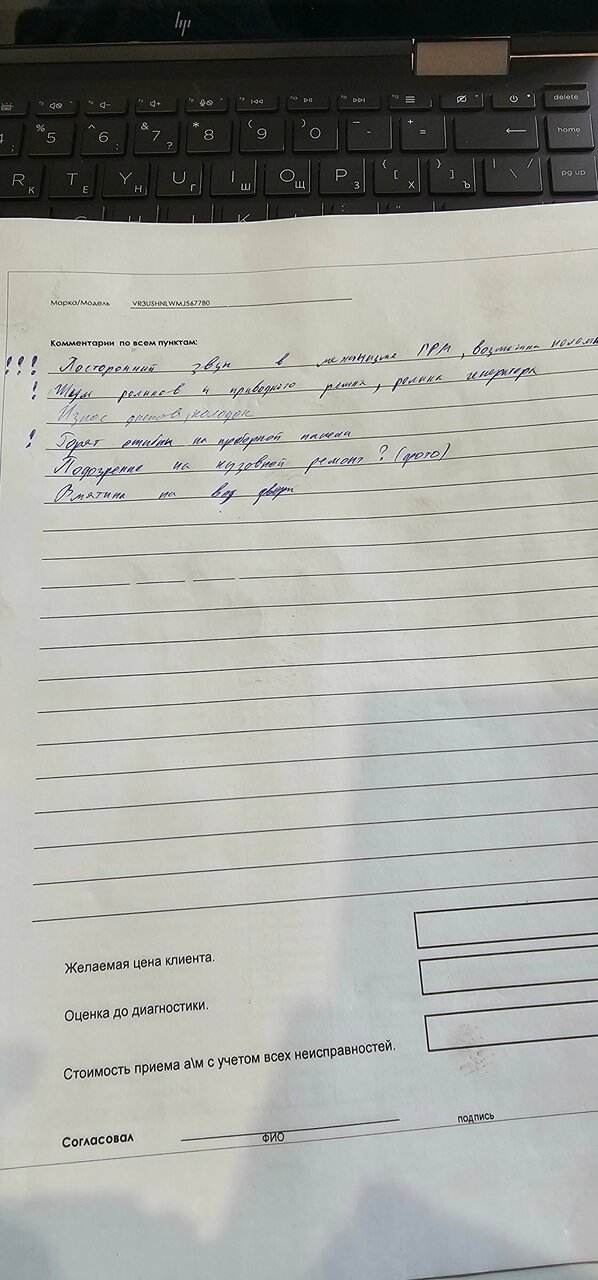 hp
delete
% 5 ^ 6 & 7 ? * 8 ( 9 ) 0 - + = ← home
R К T Е Y Н U Г I Ш O Щ P З { [ Х } ] Ъ | \ / pg up
Марка/Модель VR3USHNLWMJ567780
Комментарии по всем пунктам:
!!! Посторонний звук в механизме ГРМ, возможна
! Шум роликов и приводного ремня, ролика генератора
Износ дисков, колодок
! Горят ошибки на приборной панели
Подозрение на кузовной ремонт? (фото)
Вмятина на двери
Желаемая цена клиента.
Оценка до диагностики.
Стоимость приема а\м с учетом всех неисправностей.
Согласовал
ФИО
подпись